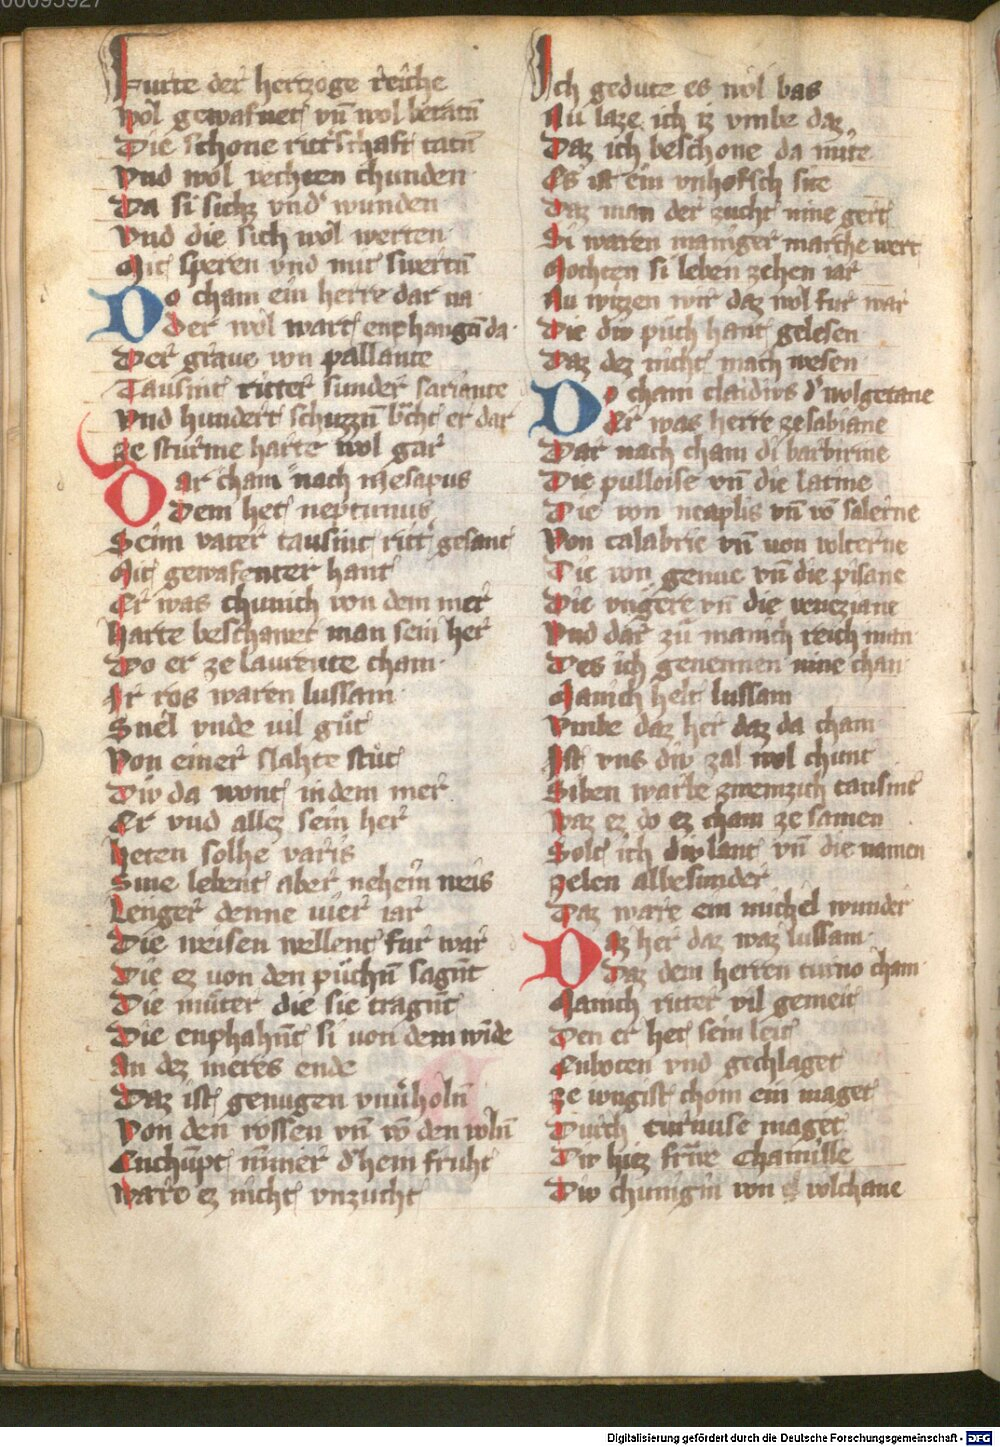 00095927
Furte der hertzoge reiche
Wol gewafnet vn̄ wol beratn̄
Die schone ritˀschaft tatn̄
Vnd wol vechten chunden
Da si sichz vndˀ wunden
Vnd die sich wol werten
Mit speren vnd mit swertn̄
Do cham ein herre dar na
Der wol wart enphangn̄ da
Der graue von pallante
Tausint ritter sunder sariante
Vnd hundert schuzzn̄ bˀcht er dar
Ze sturme harte wol gar
Dar cham nach mesapus
Dem het neptunus
Seim vater tausint rittˀ gesant
Mit gewafenter hant
Er was chunich von dem mer
Harte beschawet man sein her
Do er ze laurente cham
Ir ros waren lussam
Snel vnde uil gut
Von einer slahte stut
Diw da wont in dem mer
Er vnd allez sein her
Heten solhe varis
Swie lebent aber nehein weis
Lenger denne uier iar
Die weisen wellent fur war
Die ez von den půchn̄ sagn̄t
Die můter die sie tragn̄t
Die enphahn̄t si von dem wīde
An dez meres ende
Daz ist genugen vnuˀholn̄
Von den rossen vn̄ vō den voln̄
Enchūpt nīmer dˀhein fruht
Ward ez nicht vnzucht
Ich gedute es wol bas
Nu laze ich iz vmbe daz
Daz ich beschone da mite
Es ist ein vnhofsch site
Daz man der zucht nine gert
Si waren maniger marche wert
Mochten si leben zehen iar
Nu wizzen wir daz wol fur war
Die diw půch hant gelesen
Daz dez nicht mach wesen
Do cham claidius dˀ wolgetane
Er was herre ze sabiane
Dar nach cham di barbirine
Die pulloise vn̄ die latine
Die von neaplis vn̄ vō salerne
Von calabrie vn̄ uon volterne
Die von genue vn̄ die pisane
Die vngere vn̄ die veneziane
Vnd dar zů manich reich man
Des ich genennen nine chan
Manich helt lussam
Vmbe daz her daz da cham
Ist vns diw zal wol chunt
Siben warbe zwenzich tausint
Waz ez do ez cham ze samen
Solt ich diw lant vn̄ die namen
Zelen albesunder
Daz ware ein michel wunder
Daz her daz waz lussam
Daz dem herren turno cham
Manich ritter vil gemeit
Den er het sein leit
Enboten vnd gechlaget
Ze iungist chom ein maget
Durch turnuse maget
Diw hiez frāwe Chamille
Diw chunigin von volchane
Digitalisierung gefördert durch die Deutsche Forschungsgemeinschaft - DFG